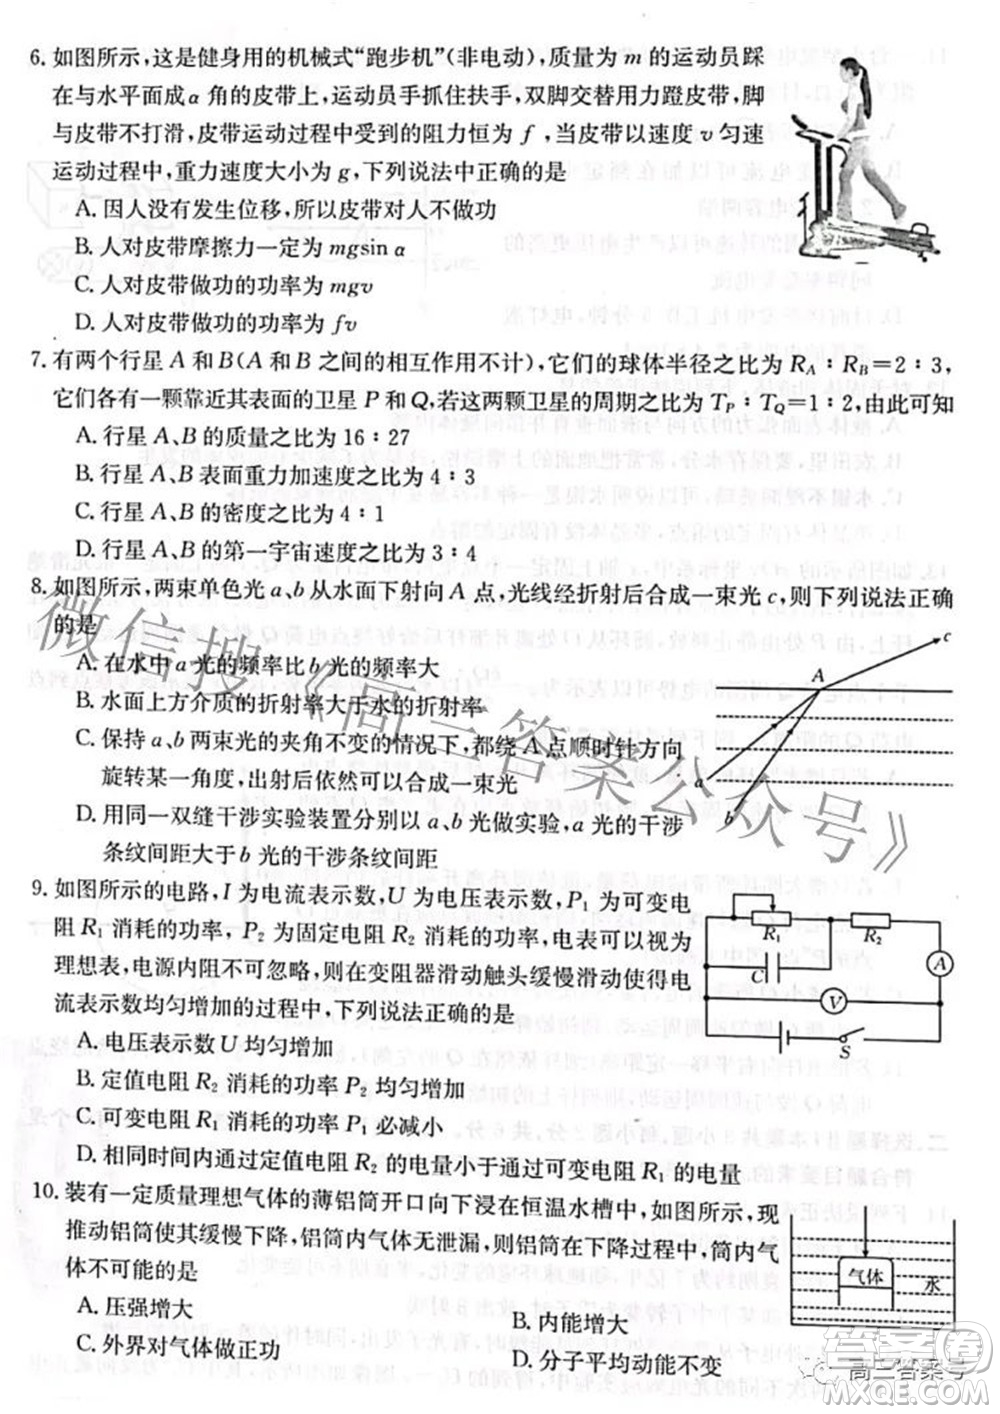 6. 如图所示,这是健身用的机械式“跑步机”(非电动),质量为 m 的运动员踩
在与水平面成α角的皮带上,运动员手抓住扶手,双脚交替用力蹬皮带,脚
与皮带不打滑,皮带运动过程中受到的阻力恒为 f,当皮带以速度 v 匀速
运动过程中,重力速度大小为 g,下列说法中正确的是
A. 因人没有发生位移,所以皮带对人不做功
B. 人对皮带摩擦力一定为 mgsin α
C. 人对皮带做功的功率为 mgv
D. 人对皮带做功的功率为 fv
7. 有两个行星 A 和 B(A 和 B 之间的相互作用不计),它们的球体半径之比为 RA∶RB=2∶3,
它们各有一颗靠近其表面的卫星 P 和 Q,若这两颗卫星的周期之比为 TP∶TQ=1∶2,由此可知
A. 行星 A、B 的质量之比为 16∶27
B. 行星 A、B 表面重力加速度之比为 4∶3
C. 行星 A、B 的密度之比为 4∶1
D. 行星 A、B 的第一宇宙速度之比为 3∶4
8. 如图所示,两束单色光 a、b 从水面下射向 A 点,光线经折射后合成一束光 c,则下列说法正确
的是
A. 在水中 a 光的频率比 b 光的频率大
B. 水面上方介质的折射率大于水的折射率
C. 保持 a、b 两束光的夹角不变的情况下,都绕 A 点顺时针方向
旋转某一角度,出射后依然可以合成一束光
D. 用同一双缝干涉实验装置分别以 a、b 光做实验,a 光的干涉
条纹间距大于 b 光的干涉条纹间距
c
A
a
b
9. 如图所示的电路,I 为电流表示数,U 为电压表示数,P1 为可变电
阻 R1 消耗的功率,P2 为固定电阻 R2 消耗的功率,电表可以视为
理想表,电源内阻不可忽略,则在变阻器滑动触头缓慢滑动使得电
流表示数均匀增加的过程中,下列说法正确的是
A. 电压表示数 U 均匀增加
B. 定值电阻 R2 消耗的功率 P2 均匀增加
C. 可变电阻 R1 消耗的功率 P1 必减小
D. 相同时间内通过定值电阻 R2 的电量小于通过可变电阻 R1 的电量
R1
R2
C
A
V
S
10. 装有一定质量理想气体的薄铝筒开口向下浸在恒温水槽中,如图所示,现
推动铝筒使其缓慢下降,铝筒内气体无泄漏,则铝筒在下降过程中,筒内气
体不可能的是
A. 压强增大
B. 内能增大
C. 外界对气体做正功
D. 分子平均动能不变
气体
水
微信搜《高三答案公众号》
答案卷
高三答案号